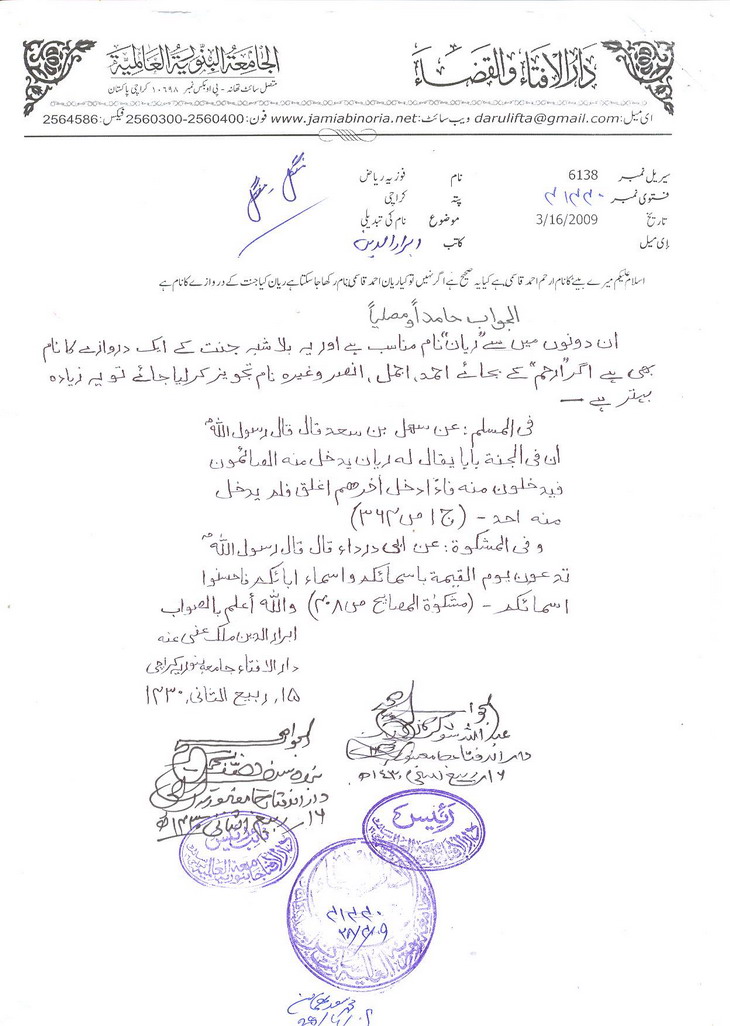 دار الافتاء والقضاء
الجامعۃ البنوریۃ العالمیۃ
متصل سائٹ تھانہ - پی او بکس نمبر ۱۰۶۹۸ کراچی پاکستان
ای میل: darulifta@gmail.com ویب سائٹ: www.jamiabinoria.net فون: 2560300-2560400 فیکس: 2564586
سیریل نمبر 6138 نام فوزیہ ریاض
فتوی نمبر پتہ کراچی
تاریخ 3/16/2009 موضوع نام کی تبدیلی
ای میل کاتب ابرارالدین
اسلام علیکم میرے بیٹے کا نام ارحم احمد قاسمی ہے کیا یہ صحیح ہے اگر نہیں تو کیا ریان احمد قاسمی نام رکھا جاسکتا ہے ریان کیا جنت کے دروازے کا نام ہے
الجواب حامداً و مصلیاً
ان دونوں میں سے "ریان" نام مناسب ہے اور یہ بلا شبہ جنت کے ایک دروازے کا نام
بھی ہے اگر "ارحم" کے بجائے احمد، اجمل، انصر وغیرہ نام تجویز کرلیا جائے تو یہ زیادہ
بہتر ہے —
فی المسلم: عن سهل بن سعد قال قال رسول اللهﷺ
ان فی الجنة بابا یقال له ریان یدخل منه الصائمون
فیدخلون منه فاذا دخل أخرهم اغلق فلم یدخل
منه احد - (ج ۱ ص ۳۶۴)
و فی المشکوة: عن ابی درداء قال قال رسول اللهﷺ
تدعون یوم القیمة باسمائکم و اسماء ابائکم فاحسنوا
اسمائکم - (مشکوٰة المصابیح ص ۴۰۸) والله أعلم بالصواب
ابرار الدین ملک عفی عنه
دار الافتاء جامعہ بنوریہ کراچی
۱۵، ربیع الثانی، ۱۴۳۰
الجواب
دار الافتاء جامعہ بنوریہ
الجواب صحیح
دار الافتاء جامعہ بنوریہ
۱۶ ربیع الثانی ۱۴۳۰ھ
رئیس
نائب رئیس